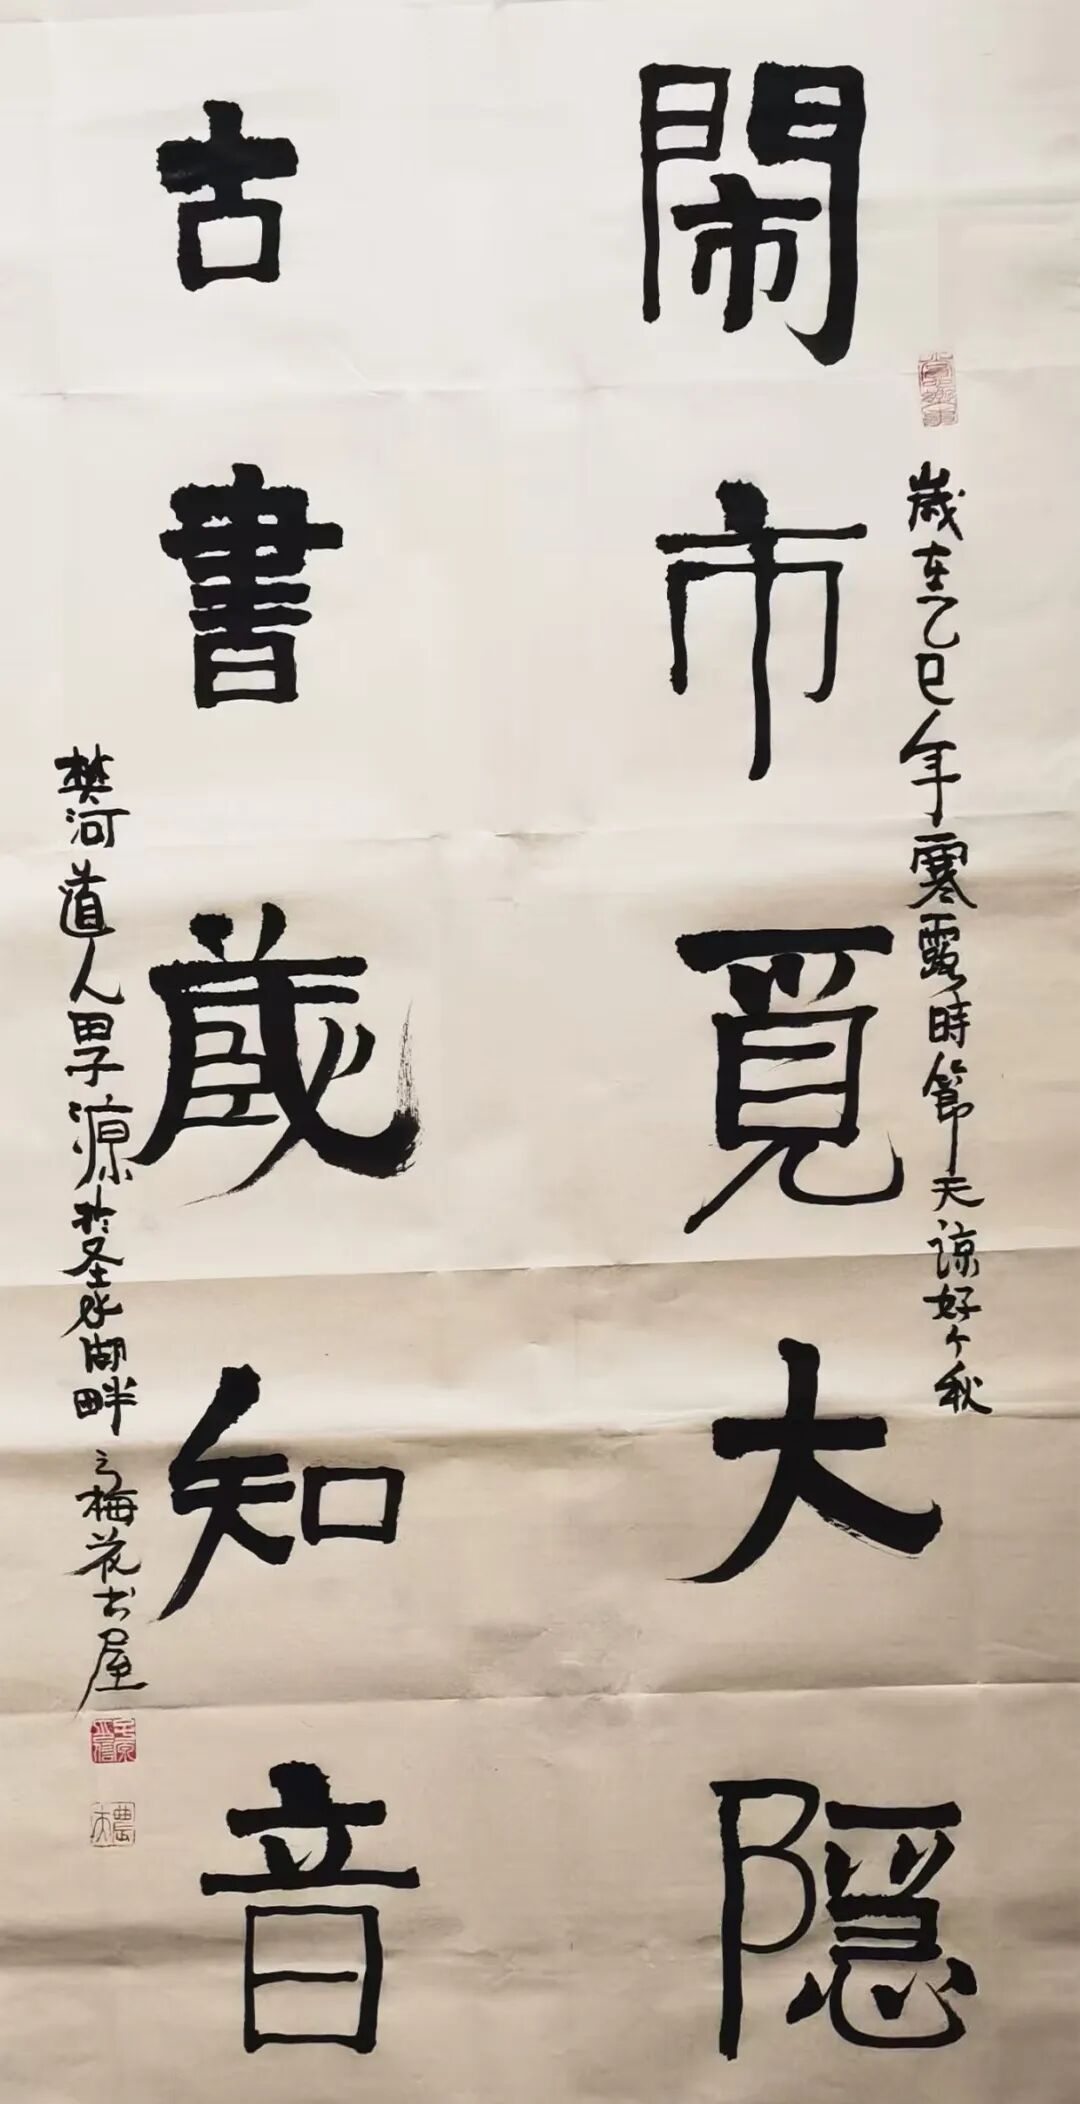 鬧市覓大隱
古書藏知音
歲在乙巳年寒露時節天諒好个秋
樊河道人男子源於圣水湖畔之梅花书屋